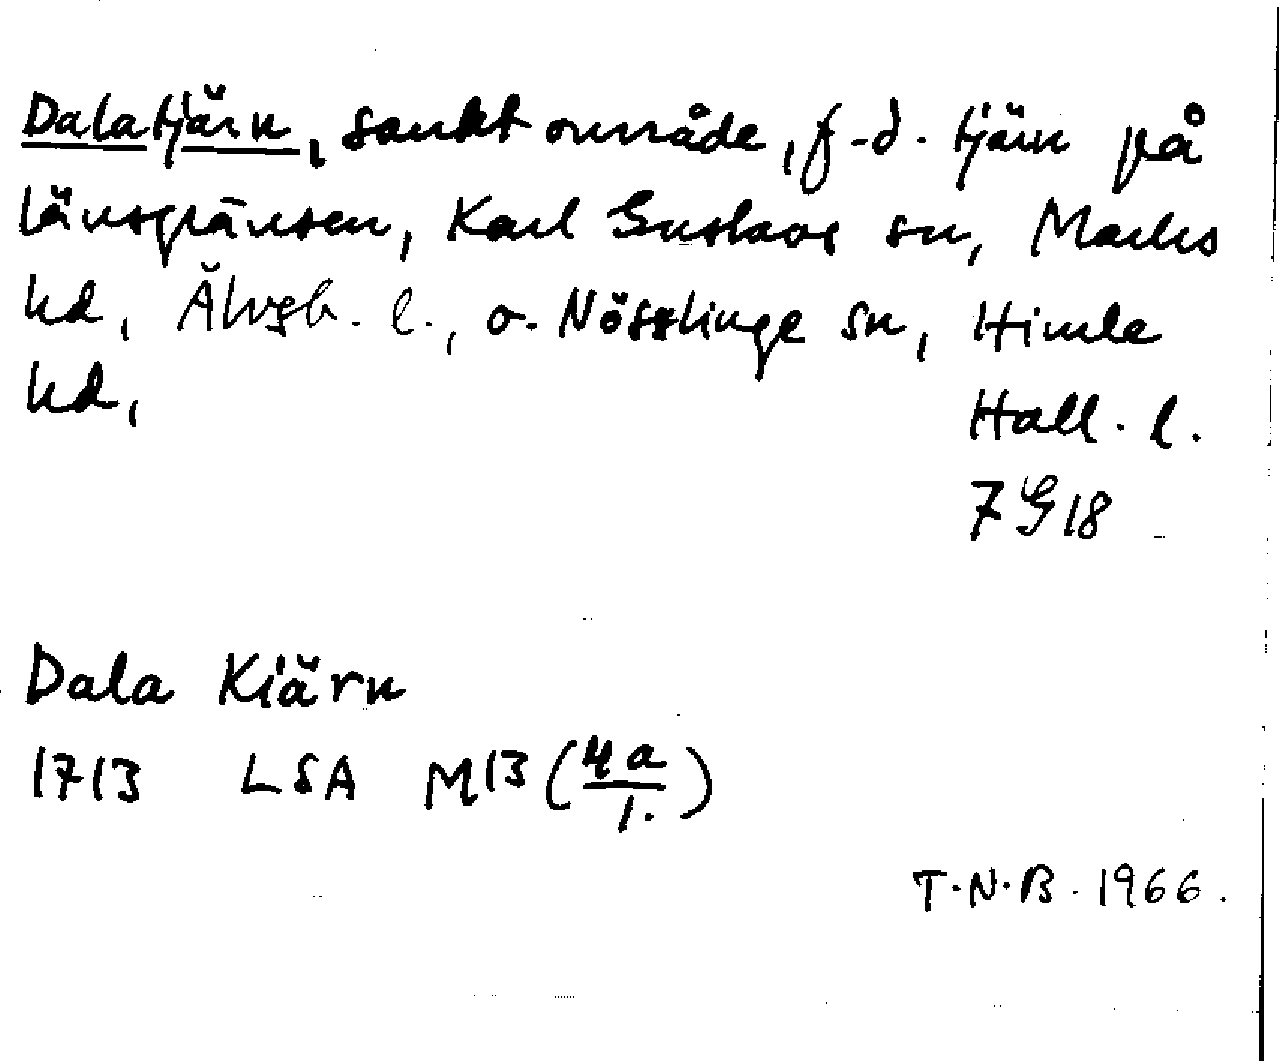 Dalatjärn, sankt område, f.d. tjärn på
länsgränsen, Karl Gustavs sn, Marks
hd, Älvsb. l., o. Nösslinge sn, Himle
hd, Hall. l.
7G18
Dala Kiärn
1713 LSA M13 (4a/1.)
T.N.B. 1966.